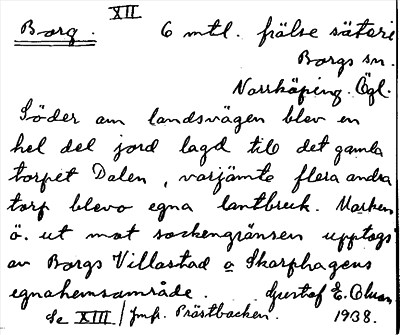 XII
Borg. 6 mtl. frälse säteri
Borgs sn.
Norrköping. Ögl.
Söder om landsvägen blev en
hel del jord lagd till det gamla
torpet Dalen, varjämte flera andra
torp blevo egna lantbruk. Marken
ö. ut mot sockengränsen upptogs
av Borgs Villastad o Skarphagens
egnahemsområde. Gustaf E. Olsson
Se XIII / jmf. Prästbacken. 1938.